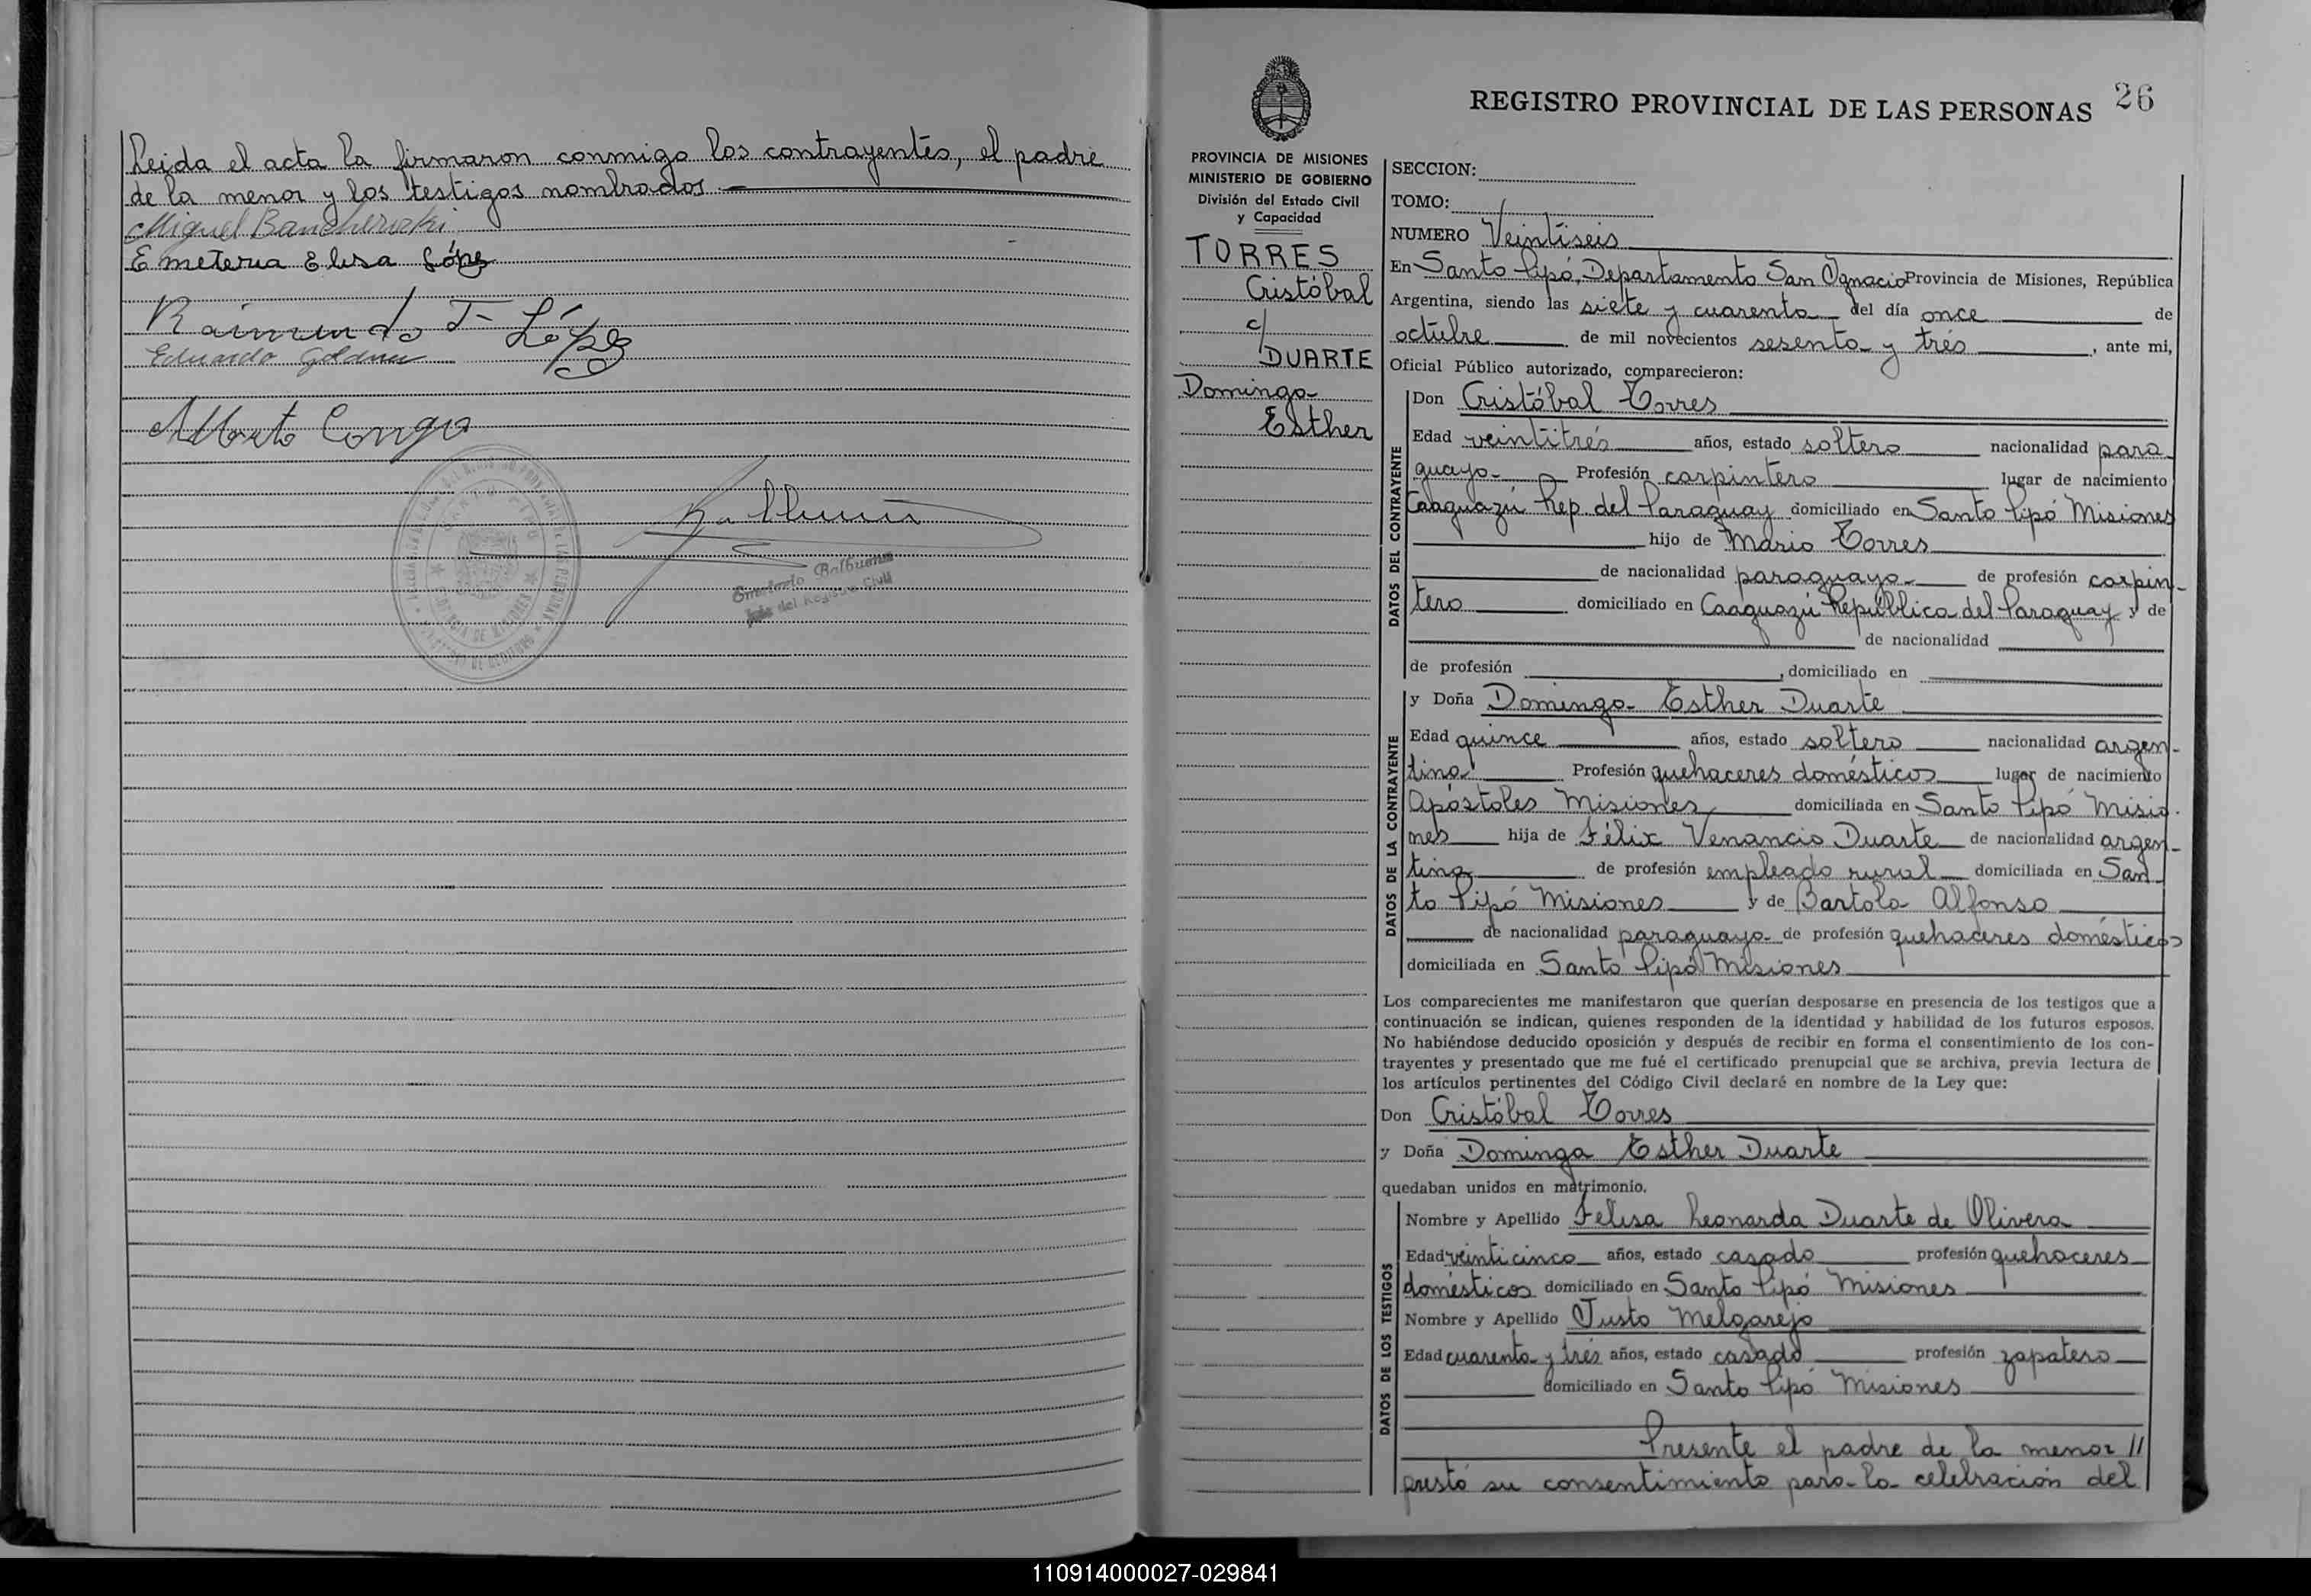 Leida el acta la firmaron conmigo los contrayentes, el padre
de la menor y los testigos nombrados.—
Miguel
Emeteria Elisa López
Raimundo F López
Eduardo
Alberto
Balbuena
Jefe del Registro Civil
26
REGISTRO PROVINCIAL DE LAS PERSONAS
PROVINCIA DE MISIONES
MINISTERIO DE GOBIERNO
División del Estado Civil
y Capacidad
TORRES
Cristóbal
c/
DUARTE
Dominga
Esther
SECCION:
TOMO:
NUMERO Veintiseis
En Santo Pipó, Departamento San Ignacio Provincia de Misiones, República
Argentina, siendo las siete y cuarenta del día once de
octubre de mil novecientos sesenta y trés, ante mi,
Oficial Público autorizado, comparecieron:
DATOS DEL CONTRAYENTE
Don Cristóbal Torres
Edad veintitrés años, estado soltero nacionalidad para
guaya Profesión carpintero lugar de nacimiento
Caaguazú Rep. del Paraguay domiciliado en Santo Pipó Misiones
hijo de Mario Torres
de nacionalidad paraguaya de profesión carpin-
tero domiciliado en Caaguazú República del Paraguay y de
de nacionalidad
de profesión , domiciliado en
DATOS DE LA CONTRAYENTE
y Doña Dominga Esther Duarte
Edad quince años, estado soltera nacionalidad argen-
tina Profesión quehaceres domésticos lugar de nacimiento
Apóstoles Misiones domiciliada en Santo Pipó Misio-
nes hija de Félix Venancio Duarte de nacionalidad argen-
tina de profesión empleado rural domiciliada en San
to Pipó Misiones y de Bartola Alfonso
de nacionalidad paraguaya de profesión quehaceres domésticos
domiciliada en Santo Pipó Misiones
Los comparecientes me manifestaron que querían desposarse en presencia de los testigos que a
continuación se indican, quienes responden de la identidad y habilidad de los futuros esposos.
No habiéndose deducido oposición y después de recibir en forma el consentimiento de los con-
trayentes y presentado que me fué el certificado prenupcial que se archiva, previa lectura de
los artículos pertinentes del Código Civil declaré en nombre de la Ley que:
Don Cristóbal Torres
y Doña Dominga Esther Duarte
quedaban unidos en matrimonio.
DATOS DE LOS TESTIGOS
Nombre y Apellido Felisa Leonarda Duarte de Olivera
Edad veinticinco años, estado casada profesión quehaceres
domésticos domiciliado en Santo Pipó Misiones
Nombre y Apellido Justo Melgarejo
Edad cuarenta y trés años, estado casado profesión zapatero
domiciliado en Santo Pipó Misiones
Presente el padre de la menor //
prestó su consentimiento para la celebración del
110914000027-029841